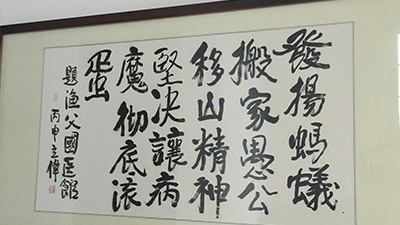 發揚螞蟻
搬家愚公
移山精神
堅决讓病
魔徹底滚
蛋
題渔父國医館
丙申立偉